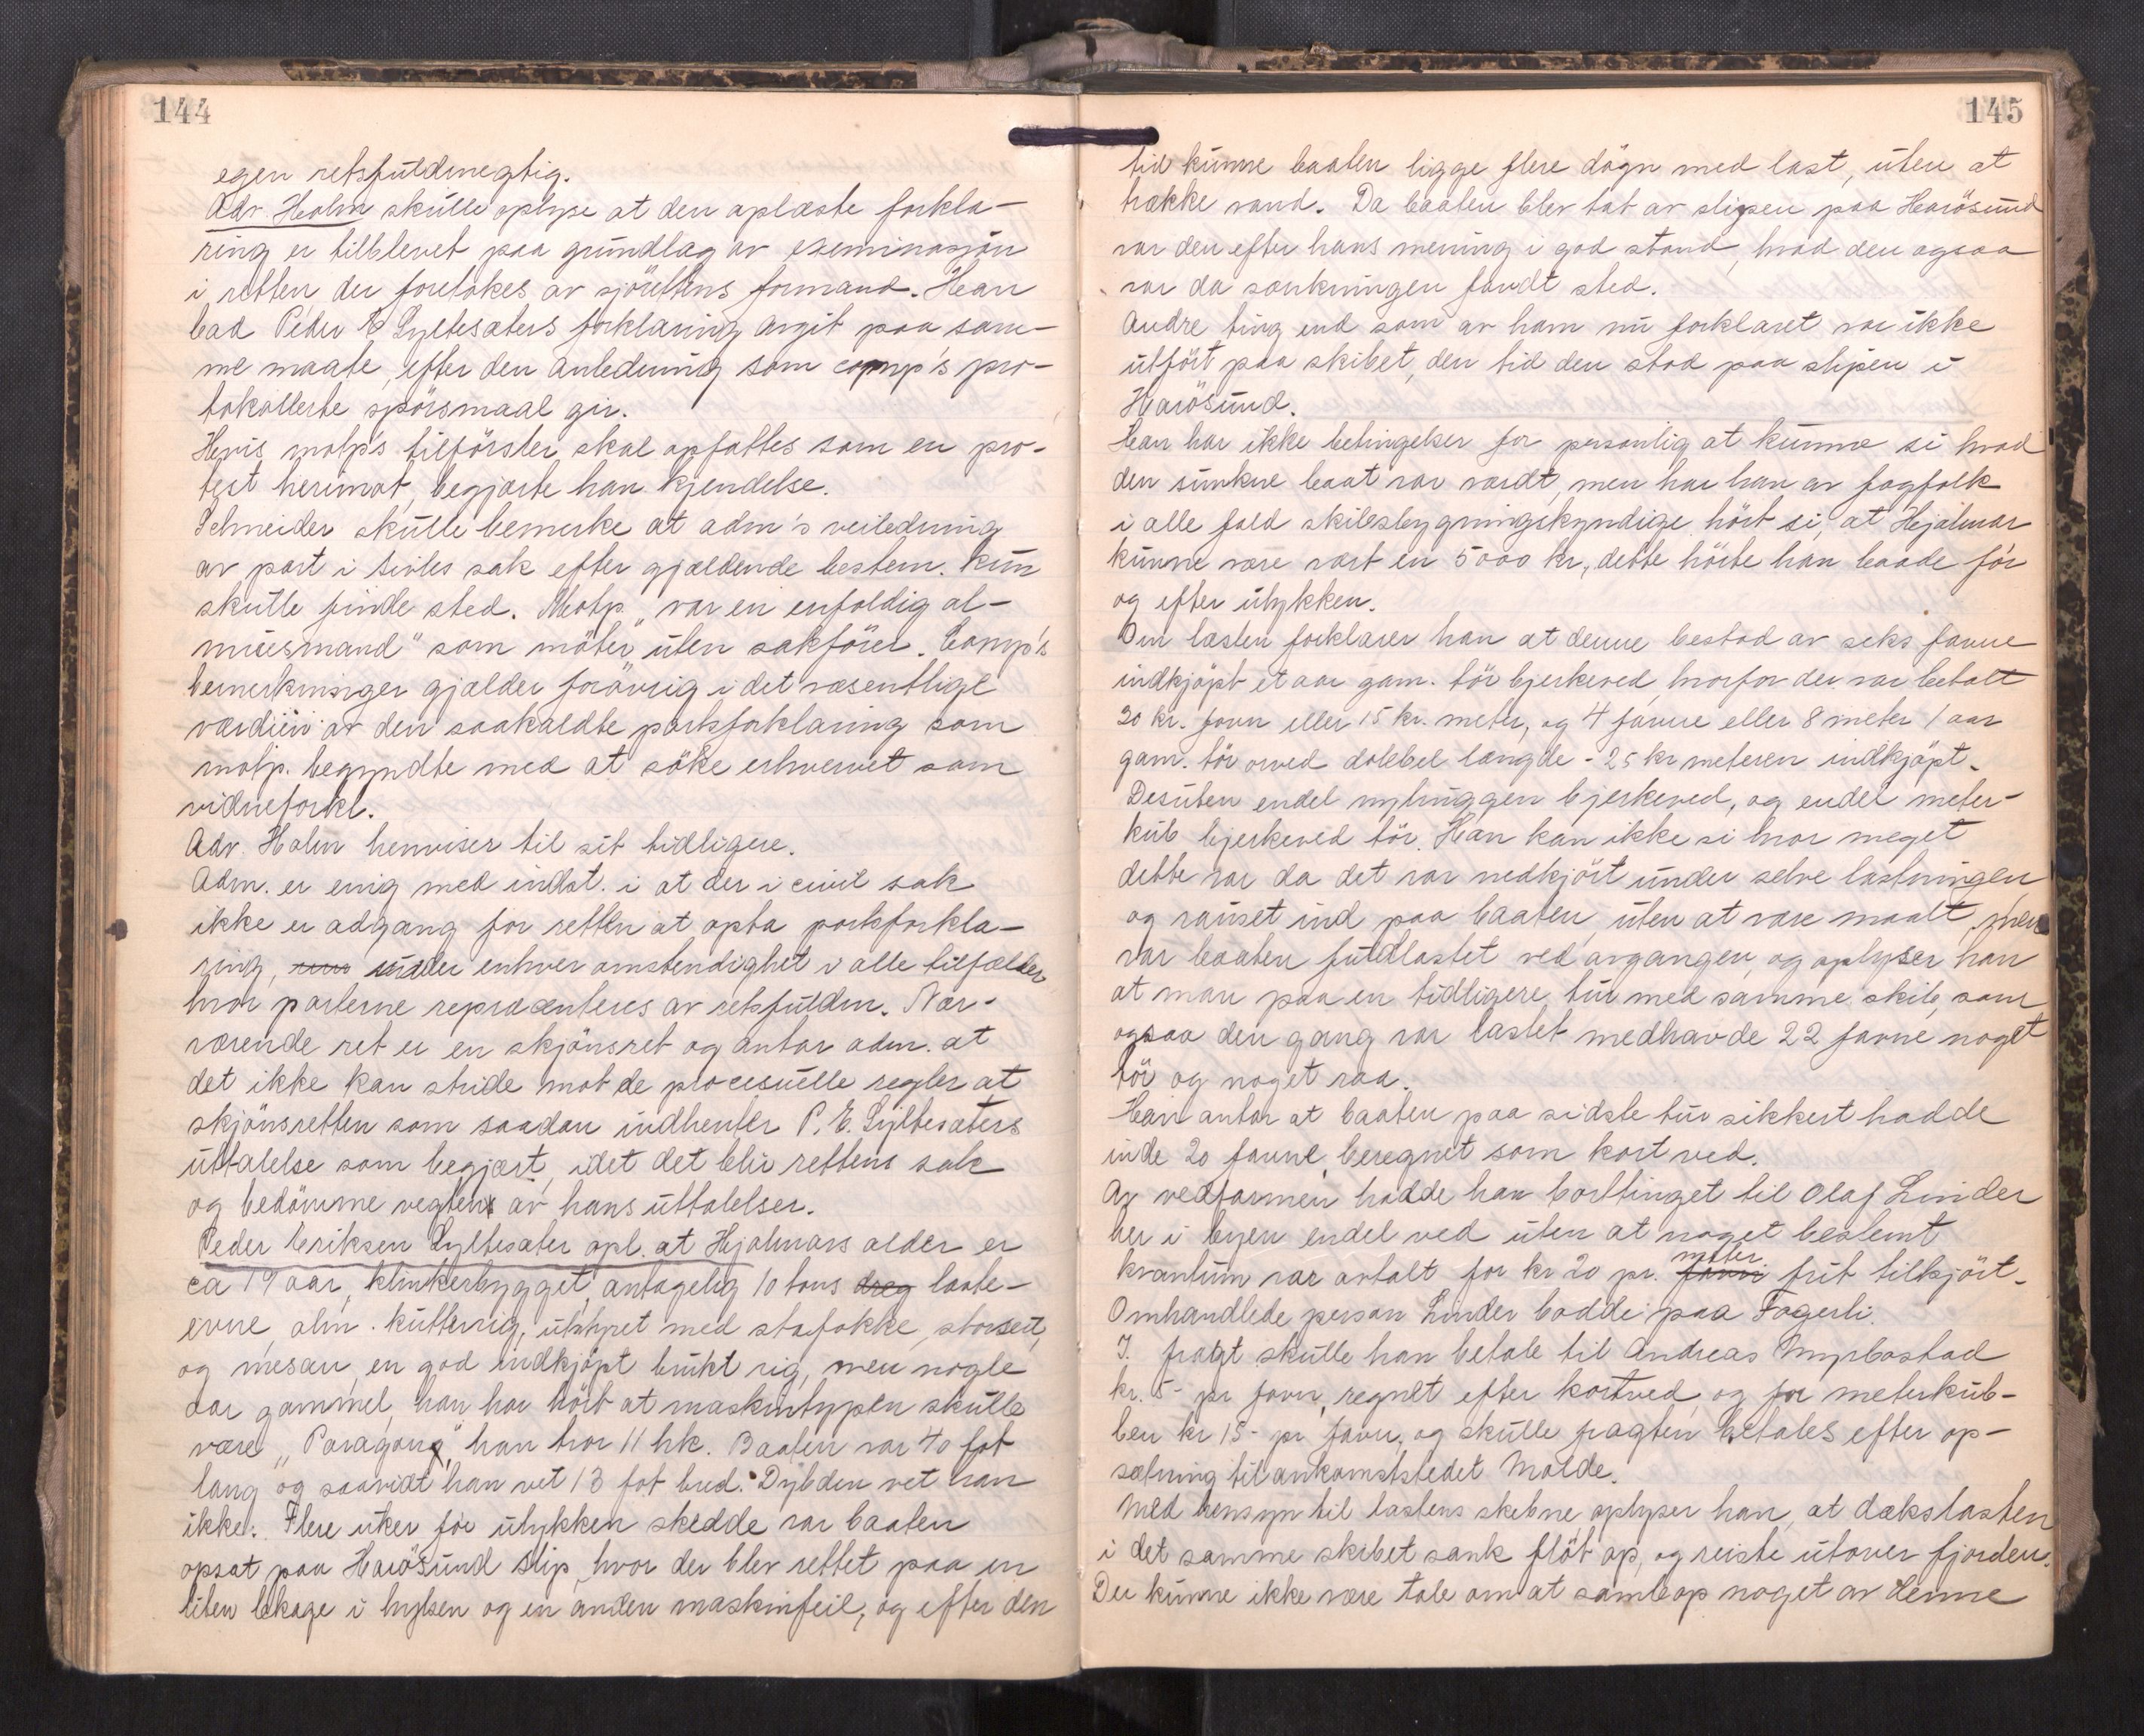 144
egen retsfuldmegtig.
Adv. Holm skulle oplyse at den oplæste forkla-
ring er tilblevet paa grundlag av exeminasjon
i retten der foretokes av sjörettens formand. Han
bad Peder E Syltesæters forklaring avgit paa sam-
me maate, efter den anledning som comp's pro-
tokollerte spörsmaal gir.
Hvis motp's tilförsler skal opfattes som en pro-
test herimot, begjærte han kjendelse.
Schneider skulle bemerke at adm's veiledning
av part i siviles sak efter gjældende bestem. kun
skulle finde sted. Motp. var en enfoldig al-
muesmand" som möter uten sakförer. Comp's
bemerkninger gjælder forövrig i det væsentlige
værdien av den saakaldte partsforklaring som
motp. begyndte med at söke erhvervet som
vidneforkl.
Adv. Holm henviser til sit tidligere.
Adm. er enig med indst. i at der i civil sak
ikke er adgang for retten at opta partsforkla-
ring, under enhver omstendighet i alle tilfælder
hvor parterne repræsenteres av retsfuldm. Nær-
værende ret er en skjönsret og antar adm. at
det ikke kan stride mot de procesuelle regler at
skjönsretten som saadan indhenter P. E. Syltesæters
uttalelse som begjært, idet det blir rettens sak
og bedömme vegten av hans uttalelser.
Peder Eriksen Syltesæter opl. at Hjalmars alder er
ca 19 aar, klinkerbygget, antagelig 10 tons dreg laste-
evne, alm. kutterrig, utstyret med stafokke, storseil,
og mesan, en god indkjöpt brukt rig, men nogle
aar gammel, han har hört at maskintypen skulle
være „Paragon", han tror 11 hk. Baaten var 40 fot
lang og saavidt han vet 13 fot bred. Dybden vet han
ikke. Flere uker för ulykken skedde var baaten
opsat paa Harösund slip, hvor der blev rettet paa en
liten lekage i hylsen og en anden maskinfeil, og efter den
145
tid kunne baaten ligge flere dögn med last, uten at
trække vand. Da baaten blev tat av slipen paa Harösund
var den efter hans mening i god stand, hvad den ogsaa
var da sænkningen fandt sted.
Andre ting end som av ham nu forklaret var ikke
utfört paa skibet, den tid den stod paa slipen i
Harösund.
Han har ikke betingelser for personlig at kunne si hvad
den sunkne baat var værdt, men har han av fagfolk
i alle fald skibsbygningskyndige hört si, at Hjalmar
kunne være vært en 5000 kr., dette hörte han baade för
og efter ulykken.
Om lasten forklarer han at denne bestod av seks favne
indkjöpt et aar gam. tör bjerkeved, hvorfor der var betalt
30 kr. favn eller 15 kr. meter, og 4 favne eller 8 meter 1 aar
gam. tör orved dobbel længde - 25 kr meteren indkjöpt.
Desuten endel nyhuggen bjerkeved, og endel meter-
kub bjerkeved tör. Han kan ikke si hvor meget
dette var da det var nedkjört under selve lastningen
og rauset ind paa baaten, uten at være maalt, men
var baaten fuldlastet ved avgangen, og oplyser han
at man paa en tidligere tur med samme skib, som
ogsaa den gang var lastet medhavde 22 favne noget
tör og noget raa.
Han antar at baaten paa sidste tur sikkert hadde
inde 20 favne, beregnet som kort ved.
Av vedfarmen hadde han borttinget til Olaf Linder
her i byen endel ved uten at noget bestemt
kvantum var avtalt for kr 20 pr. favn meter frit tilkjört.
Omhandlede person Linder bodde paa Fagerli.
I fragt skulle han betale til Andreas Myrbostad
kr. 5- pr favn, regnet efter kortved, og for meterkub-
ben kr 15- pr favn, og skulle fragten betales efter op-
sætning til ankomststedet Molde.
Med hensyn til lastens skebne oplyser han, at dækslasten
i det samme skibet sank flöt op, og reiste utover fjorden.
Der kunne ikke være tale om at samle op noget av denne